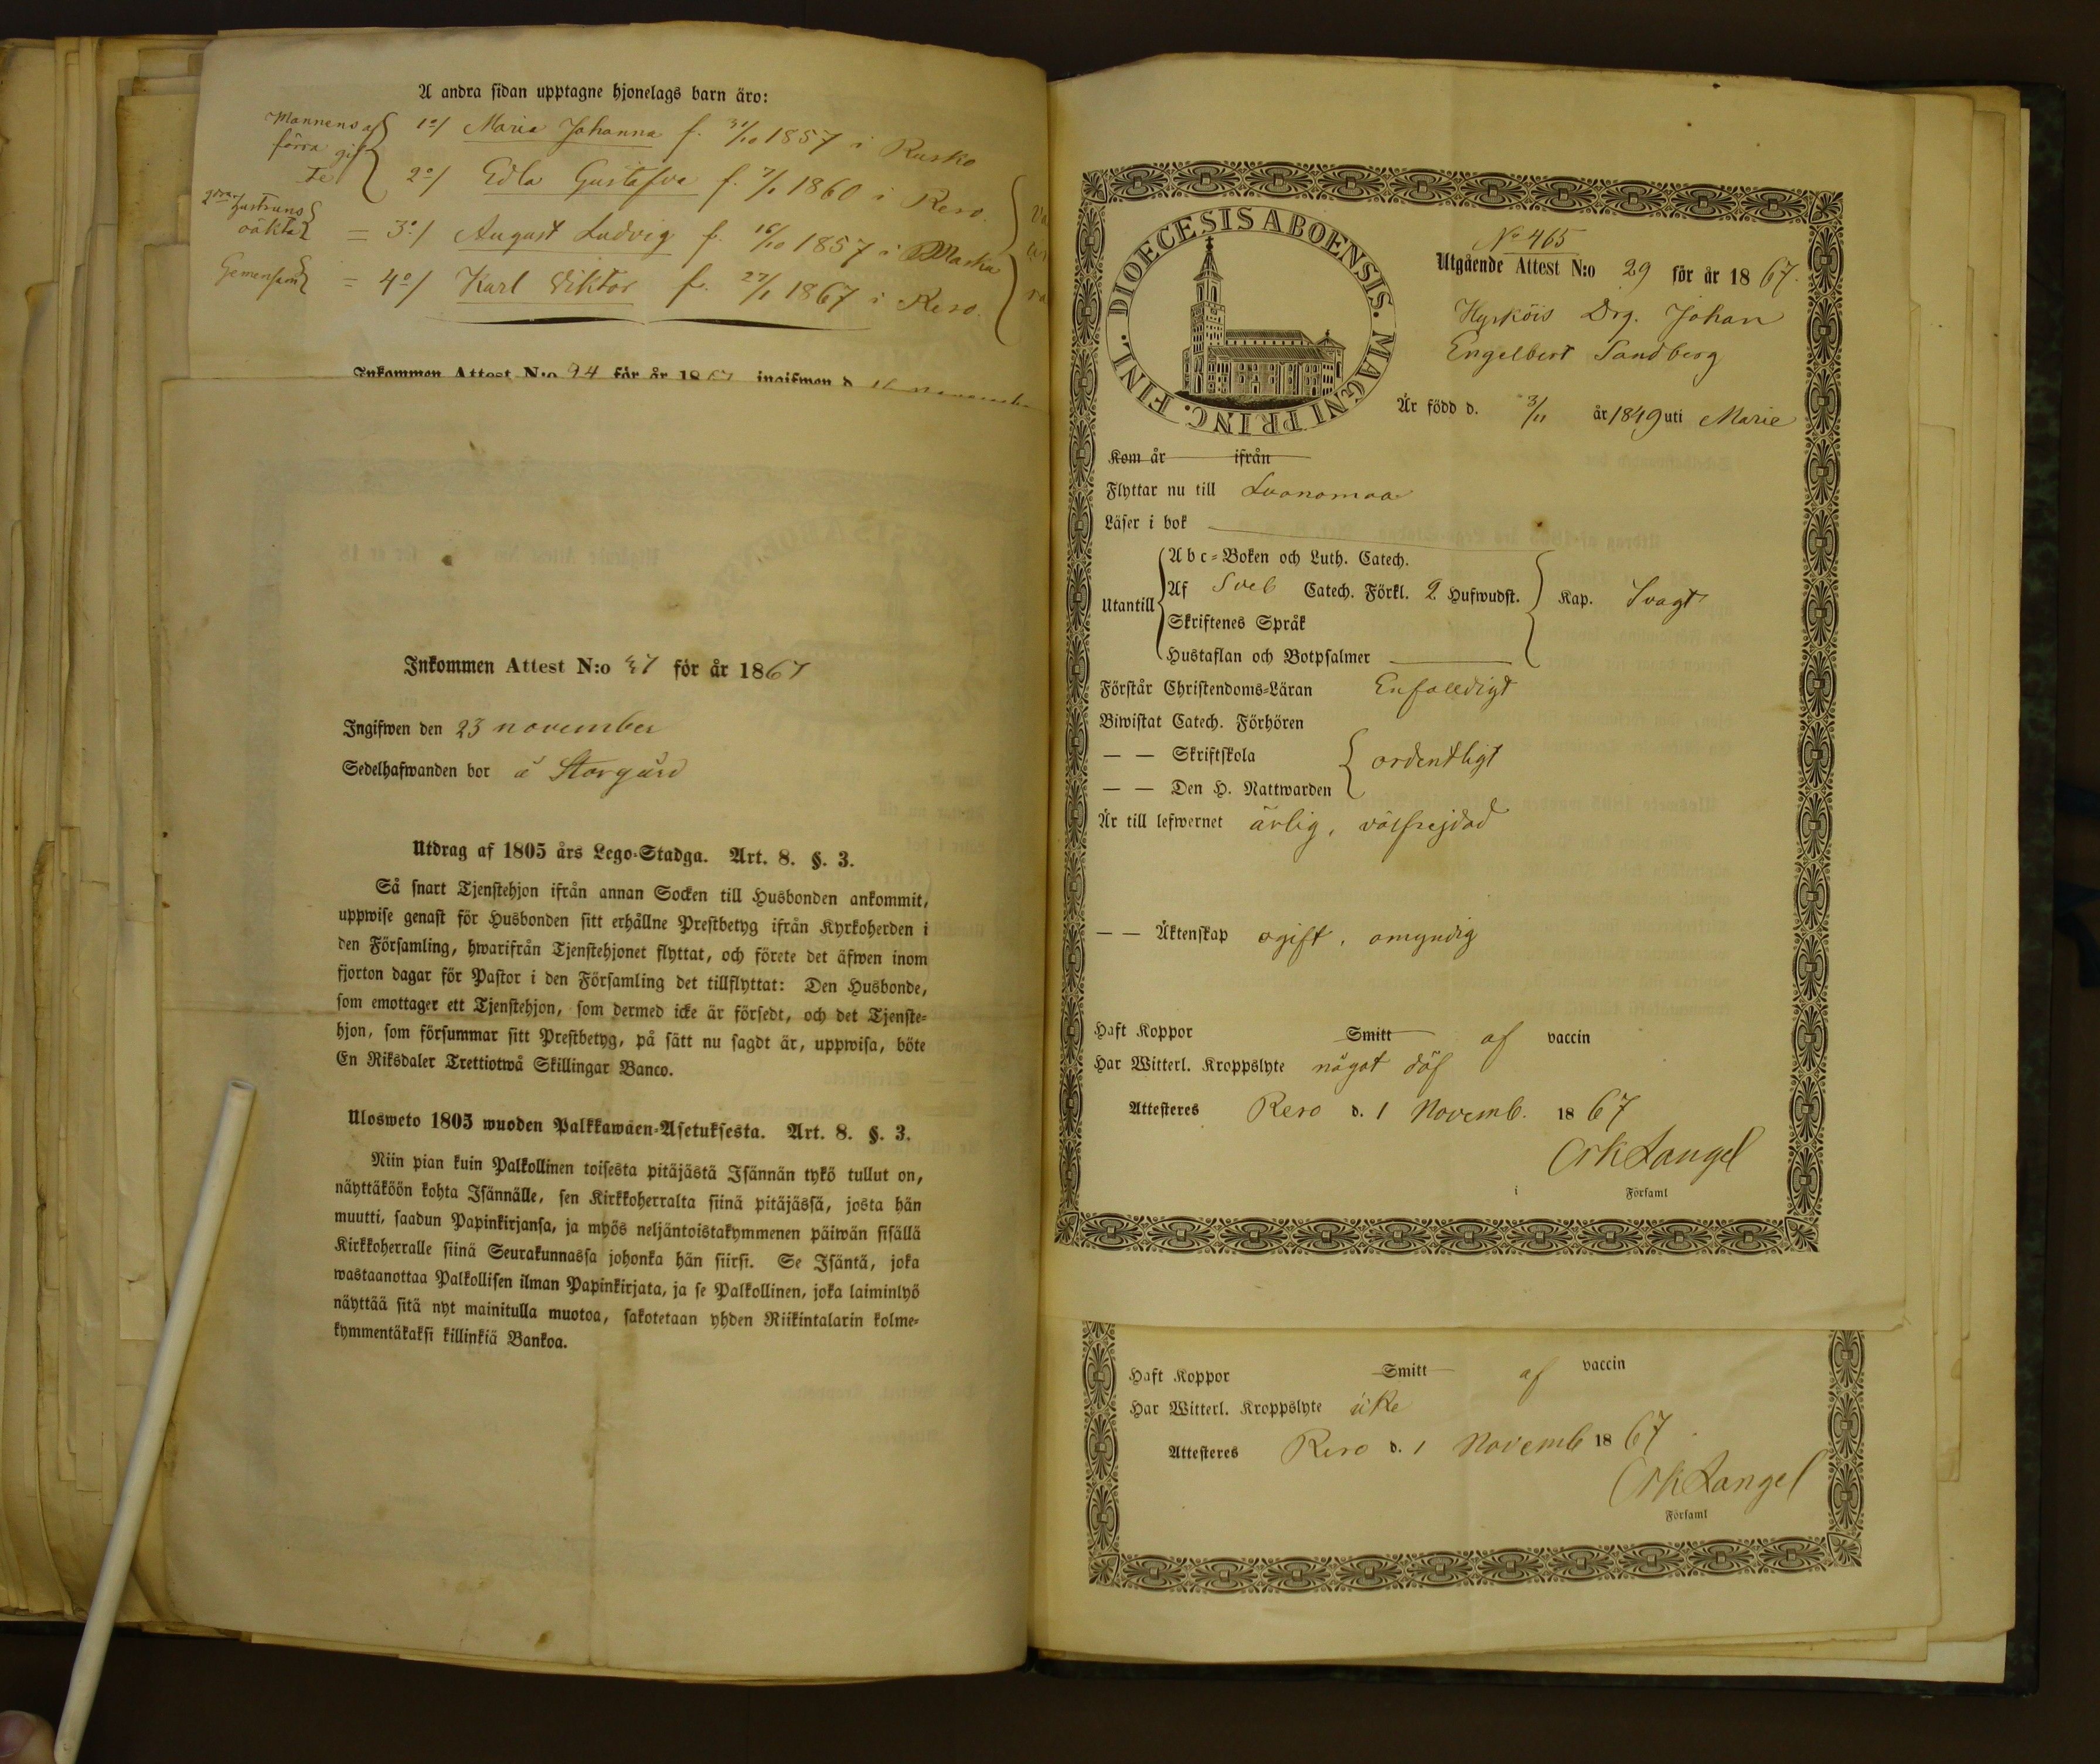 A andra sidan upptagne hjonelags barn äro:
Mannens af
förra gif
te
1o/ Maria Johanna f. 31/10 1857 i Rusko
2o/ Edla Gustafva f. 7/1 1860 i Reso.
hustruns
oäkta = 3o/ August Ludvig f. 16/10 1857 i Masku
Gemensam = 4o/ Karl Viktor f. 27/1 1867 i Reso.
Inkommen Attest N:o 94 för år 1867 ingifwen d.
Inkommen Attest N:o 37 för år 1867
Ingifwen den 23 november
Sedelhafwanden bor å Storgård
Utdrag af 1805 års Lego-Stadga. Art. 8. §. 3.
Så snart Tjenstehjon ifrån annan Socken till Husbonden ankommit,
uppwise genast för Husbonden sitt erhållne Prestbetyg ifrån Kyrkoherden i
den Församling, hwarifrån Tjenstehjonet flyttat, och förete det äfwen inom
fjorton dagar för Pastor i den Församling det tillflyttat: Den Husbonde,
som emottager ett Tjenstehjon, som dermed icke är försedt, och det Tjenste-
hjon, som försummar sitt Prestbetyg, på sätt nu sagdt är, uppwisa, böte
En Riksdaler Trettiotwå Skillingar Banco.
Ulosweto 1805 wuoden Palkkawäen-Asetuksesta. Art. 8. §. 3.
Niin pian kuin Palkollinen toisesta pitäjästä Isännän tykö tullut on,
näyttäköön kohta Isännälle, sen Kirkkoherralta siinä pitäjässä, josta hän
muutti, saadun Papinkirjansa, ja myös neljäntoistakymmenen päiwän sisällä
Kirkkoherralle siinä Seurakunnassa johonka hän siirsi. Se Isäntä, joka
wastaanottaa Palkollisen ilman Papinkirjata, ja se Palkollinen, joka laiminlyö
näyttää sitä nyt mainitulla muotoa, sakotetaan yhden Riikintalarin kolme-
kymmentäkaksi killinkiä Bankoa.
DIOECESIS ABOENSIS. MAGNI PRINC. FINL.
No 465
Utgående Attest N:o 29 för år 1867.
Hyrköis Drg. Johan
Engelbert Sandberg
Är född d. 3/11 år 1849 uti Marie
Kom år ifrån
Flyttar nu till Luonomaa
Läser i bok
Utantill
Abc-Boken och Luth. Catech.
Af Sveb Catech. Förkl. 2 Hufwudst. Kap. Svagt
Skriftenes Språk
Hustaflan och Botpsalmer
Förstår Christendoms-Läran Enfalldigt
Biwistat Catech. Förhören
— — Skriftskola ordentligt
— — Den H. Nattwarden
Är till lefwernet ärlig, välfrejdad
— — Äktenskap ogift, omyndig
Haft Koppor Smitt af vaccin
Har Witterl. Kroppslyte något döf
Attesteres Reso d. 1 Novemb. 1867
Langel
i Forsaml
Haft Koppor Smitt af vaccin
Har Witterl. Kroppslyte icke
Attesteres Reso d. 1 Novemb 1867
Langel
Församl